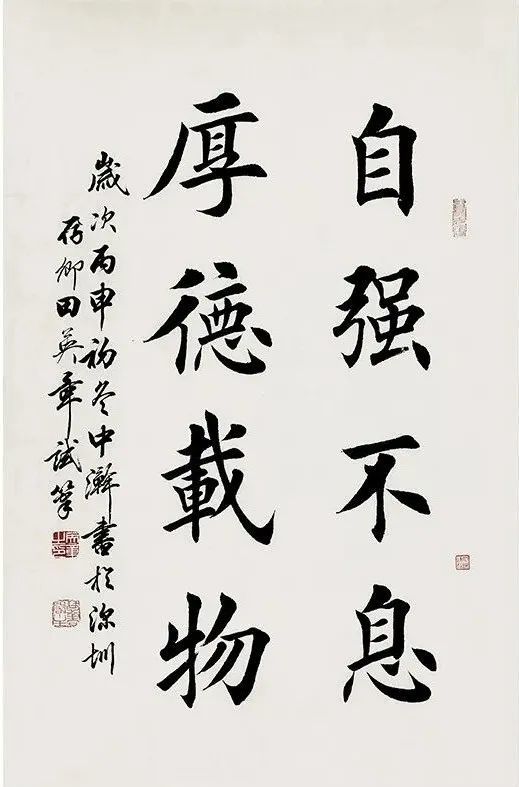 自强不息
厚德載物
歲次丙申初冬中澣書於深圳
存卿田英章試筆